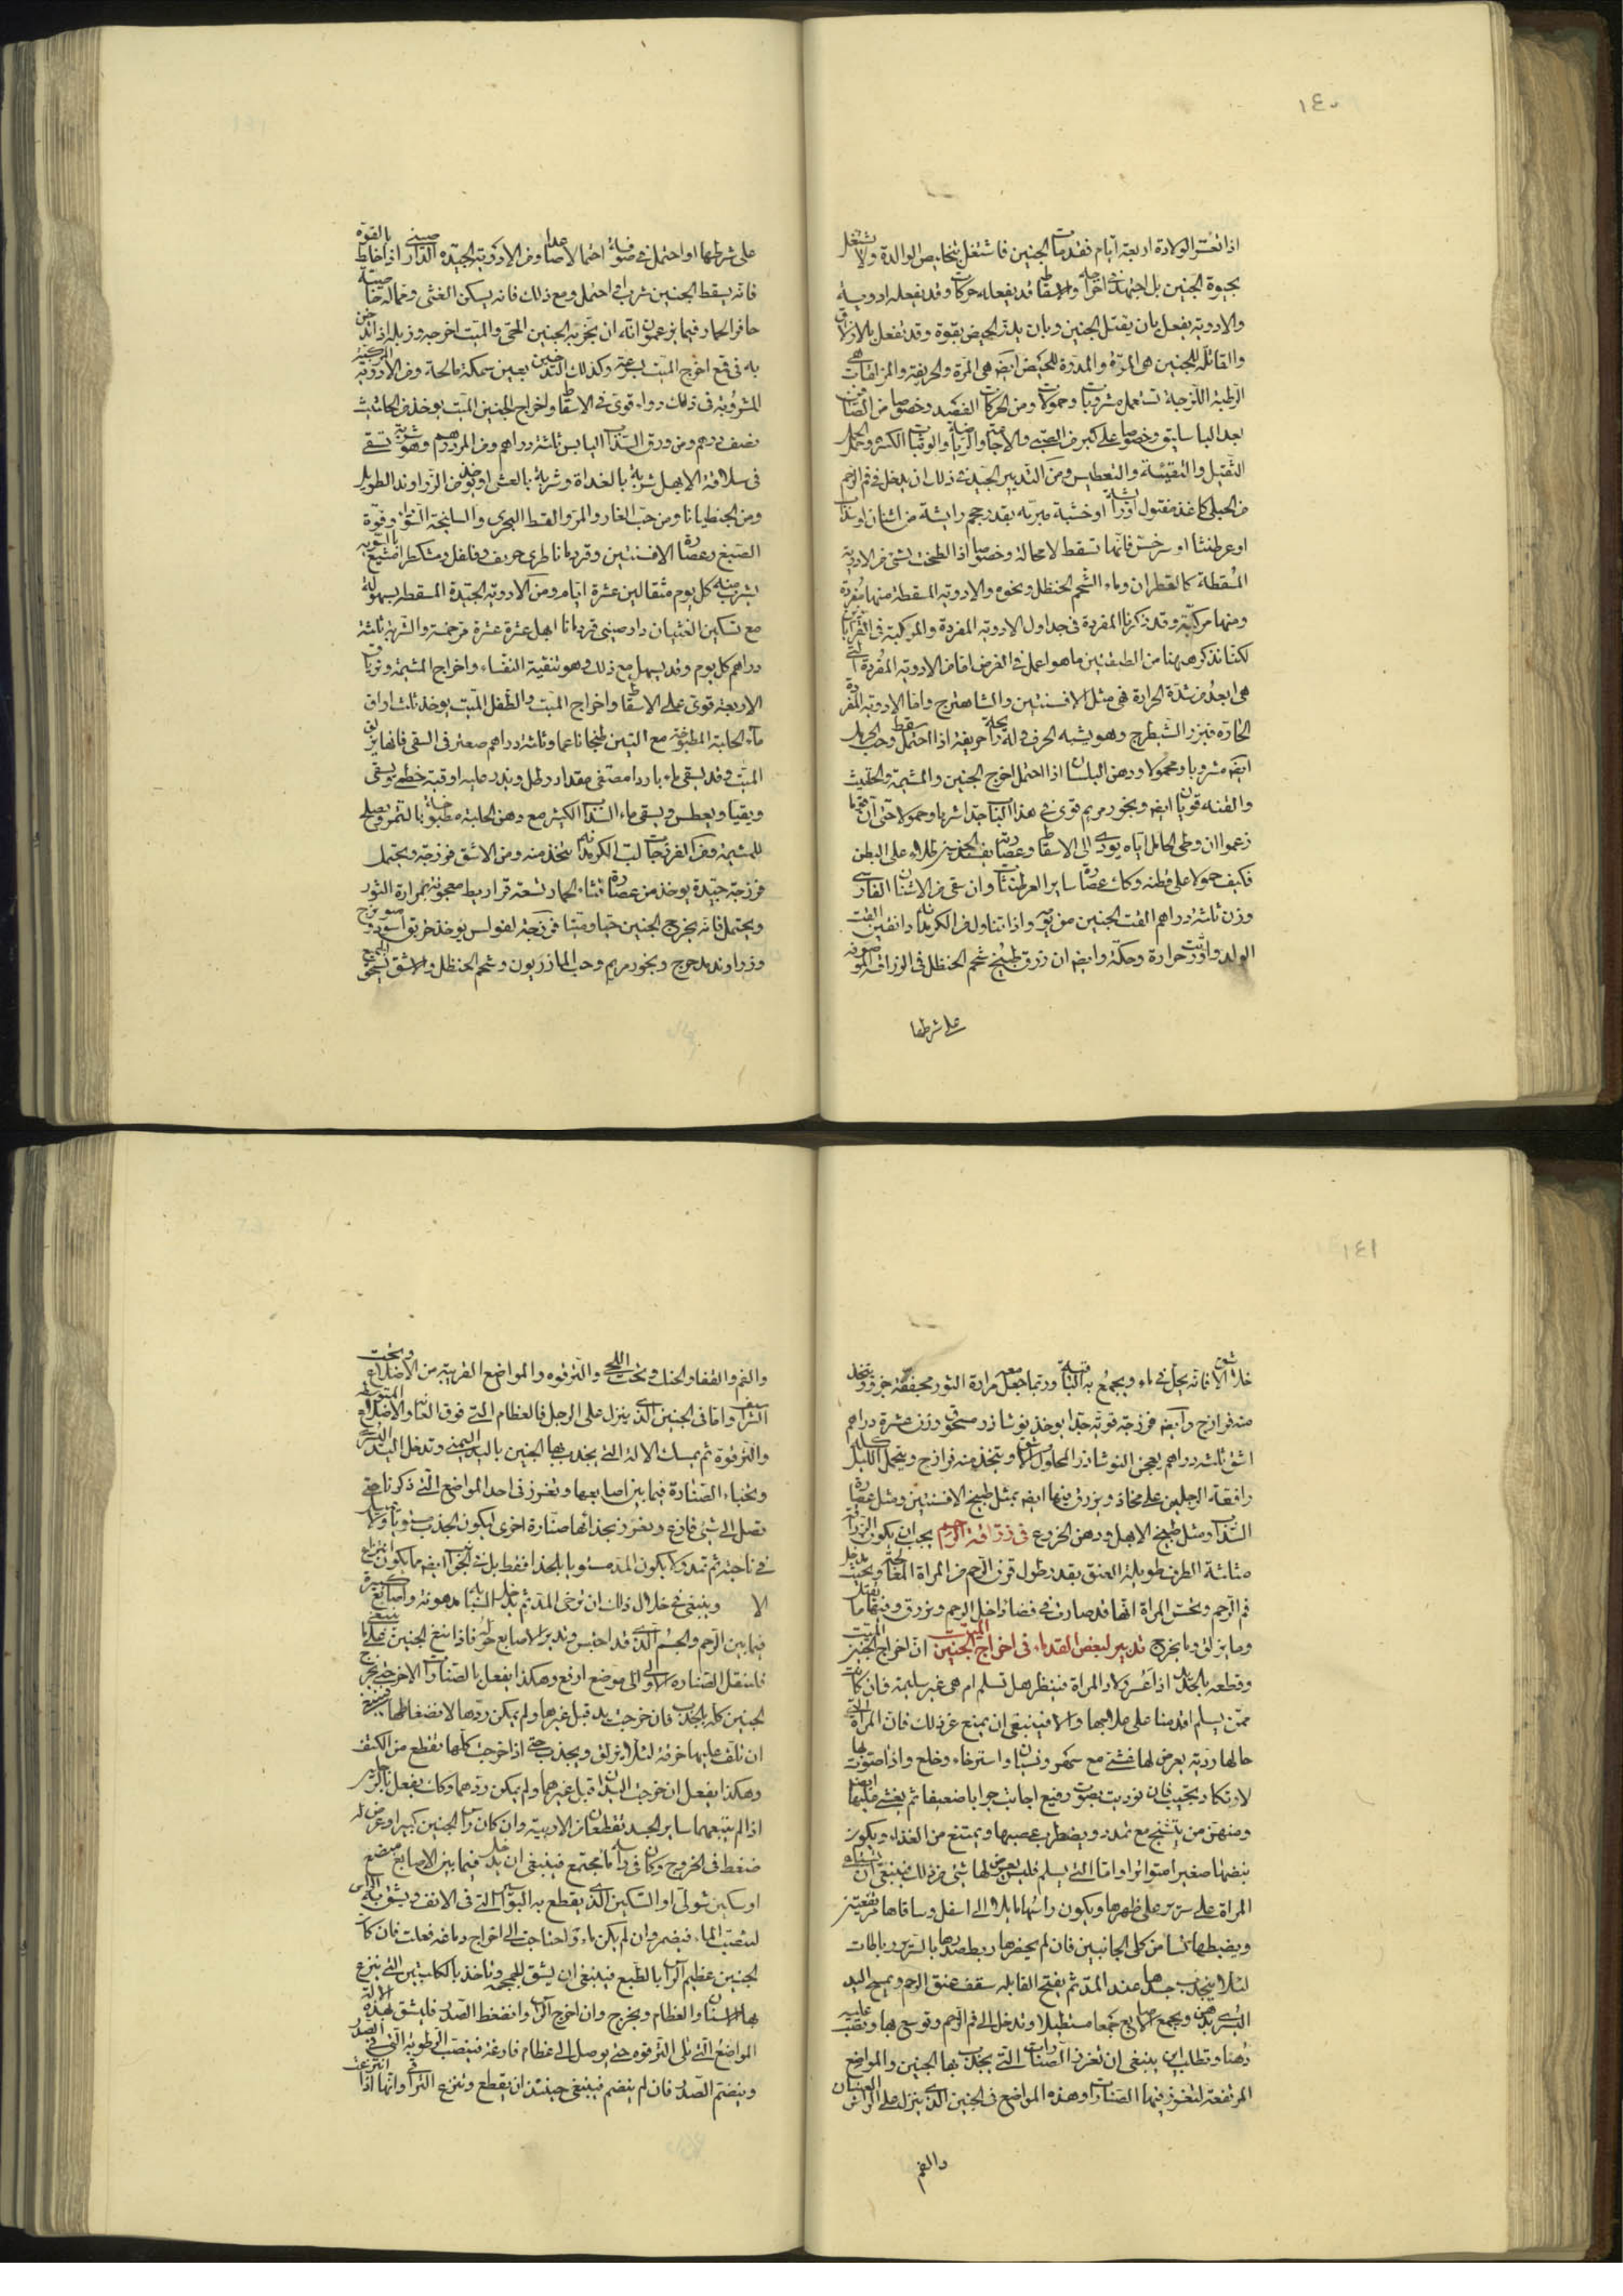 ١٤٠
اذا تعسر الولادة اربعة ايام فقد مات الجنين فاشتغل بتخليص الوالدة ولا تشتغل
بحيوة الجنين بل اجتهد في اخراجه والاسقاط قد يفعله حركات وقد يفعله ادوية
والادوية يفعل بان يقتل الجنين وبان يدر الحيض بقوة وقد تفعل بالازلاق
والقاتلة للجنين هى المرة والمدرة للحيض ايضا هى المرة والحريفة والمزلقات هى
الرطبة اللزجة تستعمل مشروبات وحمولات ومن الحركات الفصد وخصوصا من الصافن
بعد الباسليق وخصوصا على كبر من الصبى والاجاعة والرياضة والوثبات الكثيرة وحمل
الثقيل والتقيئة والتعطيس ومن التدبير الجيد فى ذلك ان يدخل فى فم الرحم
من الحبلى كاغذ مفتول او ريشة او خشبة مبرية بقدر حجم الريشة من اشنان او سذاب
او عرطنيثا او سرخس فانها تسقط لا محالة وخصوصا اذا لطخت بشئ من الادوية
المسقطة كالقطران وماء الشحم الحنظل ونحوه والادوية المسقطة منها مفردة
ومنها مركبة وقد ذكرنا المفردة فى جداول الادوية المفردة والمركبة فى القراباذين
لكنا نذكر ههنا من الطبقتين ما هو اعمل فى الغرض اما من الادوية المفردة التى
هى ابعد من شدة الحرارة فهى مثل الافسنتين والشاهترج واما الادوية المفردة
الحارة فبزر الشيطرج وهو يشبه الحرف وله رائحة حريفة اذا احتمل سقط وحب الحرمل
ايضا مشروبا ومحمولا ودهن البلسان اذا احتمل اخرج الجنين والمشيمة والحلتيت
والقنة قويان ايضا وبخور مريم قوى فى هذا الباب جدا شربا وحمولا حتى ان قوما
زعموا ان وطى الحامل اياه يودى الى الاسقاط وعصارته يفسد الجنين طلاء على البطن
فكيف حمولا على قطنة وكذلك عصارة ساير العرطنيثات وان سقى من الاشنان الفارسى
وزن ثلثة دراهم القت الجنين من يومه واذا تناول من الكرمدانه دانقين القت
الولد واورثت حرارة وحكة وايضا ان زرق طبيخ شحم الحنظل فى الزراقة الموصوفة
على شرطها
على شرطها او احتمل فى صوفة احتمالا صاعدا ومن الادوية الجيدة الدار صينى اذا خلط بالقوة
فانه يسقط الجنين شربا او احتمل ومع ذلك فانه يسكن الغثى وفعاله خاصية
حافر الحمار فيما يزعمون انه ان بخر به الجنين الحى والميت اخرجه وزبله اذا تدخن
به فى قمع اخرج الميت بسرعة وكذلك التدخين بعين سمكة مالحة ومن الادوية المركبة
المشروبة فى ذلك دواء قوى فى الاسقاط واخراج الجنين الميت يوخذ من الحلتيت
نصف درهم ومن ورق السذاب اليابس ثلثة دراهم ومن المر درهم وهو شربة تسقى
فى سلاقة الابهل شربة بالغداة وشربة بالعشى او يوخذ من الزراوند الطويل
ومن الجنطيانا ومن حب الغار والمر والقسط البحرى والسليخة السودا وفوة
الصبغ وعصارة الافسنتين وقردمانا طرى حريف وفلفل ومشكطرامشيع بالسوية
يشرب منه كل يوم مثقالين عشرة ايام ومن الادوية الجيدة المسقطة بسهولة
مع تسكين الغثيان دارصينى قردمانا ابهل عشرة عشرة مر خمسة والشربة ثلثة
دراهم كل يوم وقد يسهل مع ذلك وهو لتنقية النفساء واخراج المشيمة وترياق
الاربعة قوى على الاسقاط واخراج الميت والطفل الميت يوخذ ثلث اواق
ماء الحلبة المطبوخة مع التين طبخا ناعما وثلثة دراهم صعتر فى السقى فانها يزلق
الميت وقد يسقى ماء باردا مصفى مقدار رطل ويذر عليه اوقية خطمى ويسقى
ويقيا ويعطس ويسقى ماء السذاب الكثير مع دهن الحلبة مطبوخا بالتمر ويصلح
للمشيمة ومن الفرزجات لب الكرمدانه تتخذ منه ومن الاشق فرزجة ويحتمل
فرزجة جيدة يوخذ من عصارة قثاء الحمار تسعة قراريط معجونة بمرارة الثور
ويحتمل فانه يخرج الجنين حيا وميتا فرزجة لفولس يوخذ خربق اسود وميويزج
وزراوند مدحرج وبخور مريم وحب المازريون وشحم الحنظل والاشق يسحق الجميع
١٤١
خلا الاشق فانه يحل فى ماء ويجمع به الباقية وربما جعل معه مرارة الثور مجففة جزو ويتخذ
منه فرازج وايضا فرزجة قوية جدا يوخذ نوشاذر مسحوق وزن عشرة دراهم
اشق ثلثة دراهم يعجن النوشاذر المحلول بالاشق ويتخذ منه فرازج ويحتمل الليل كله
رافعة الرجلين على مخاد ويزرق فيها ايضا بمثل طبيخ الافسنتين ومثل عصارة
السذاب ومثل طبيخ الابهل ودهن الخروع فى زراقة الرحم يجب ان يكون الزراقة
مثلثة الطرف طويلة العنق بقدر طول قرن الرحم من المراة المعالجة وبحيث يدخل
فم الرحم وتحس المراة انها قد صارت فى فضاء داخل الرحم ويزرق فيها ما يقتل
وما يزلق وما يخرج تدبير لبعض القدماء فى اخراج الجنين الميت ان اخراج الجنين الميت
وقطعه بالحديد اذا عسر ولاد المراة فينظر هل تسلم ام هى غير سليمة فان كانت
ممن يسلم اقدمنا على علاجها والا فينبغى ان يمتنع عن ذلك فان المراة التى
حالها ردية يعرض لها غشى مع سهر ونسيان واسترخاء وخلع واذا صوت بها
لا تكاد تجيب فان نوديت بصوت رفيع اجابت جوابا ضعيفا ثم يغشى عليها ايضا
ومنهن من يتشنج مع تمدد ويضطرب عصبها ويمتنع من الغذاء ويكون
نبضها صغيرا متواترا واما التى يسلم فليس يعرض لها شئ من ذلك فينبغى ان تستلقى
المراة على سرير على ظهرها ويكون راسها مايلا الى اسفل وساقاها مرتفعتين
ويضبطها نساء من كلى الجانبين فان لم يحضرها ربط صدرها بالسرير برباطات
لئلا ينجذب جسدها عند المد ثم يفتح القابلة سقف عنق الرحم ويمسح اليد
اليسرى بدهن ويجمع الاصابع جمعا مستطيلا وتدخل الى فم الرحم وتوسع بها وتصب عليه
دهنا وتطلب اين ينبغى ان تغرز الصنارات التى يجذب بها الجنين والمواضع
المرتفعة لتغرز فيها الصنارات وهذه المواضع فى الجنين الذى ينزل على الراس العينان
والفم
والفم والقفا والحنك وتحت اللحى والترقوة والمواضع القريبة من الاضلاع وتحت
الشراسيف واما فى الجنين الذى ينزل على الرجل فالعظام التى فوق العانة والاضلاع المتوسطة
والترقوة ثم يمسك الالة التى يجذب بها الجنين باليد اليمنى وتدخل اليد اليسرى
ويخباء الصنارة فيما بين اصابعها وتغرز فى احد المواضع التى ذكرنا حتى
تصل الى شئ فارغ ويغرز بحذائها صنارة اخرى ليكون الجذب مستويا ولا يميل
فى ناحية ثم تمد ولا يكون المد مستويا بالحذاء فقط بل الى الجوانب ايضا كما يكون انتزاع
الا وينبغى فى خلال ذلك ان ترخى المد ثم يدخل السبابة مدهونة واصابع كثيرة
فيما بين الرحم والجسم الذى قد احتبس وتدير الاصابع حوله فاذا تبع الجنين على ما ينبغى
فلتنقل الصنارة الاولى الى موضع ارفع وهكذا يفعل بالصنارة الاخرى حتى يخرج
الجنين كله بالجذب فان خرجت يد قبل غيرها ولم يمكن ردها لانضغاطها فينبغى
ان تلف عليها خرقة لئلا يزلق ويجذب حتى اذا خرجت كلها تقطع من الكتف
وهكذا يفعل ان خرجت اليدان قبل غيرهما ولم يمكن ردهما وكذلك يفعل بالرجلين
اذا لم يتبعهما ساير الجسد تقطعان من الاربية وان كان راس الجنين كبيرا وعرض له
ضغط فى الخروج وكان فى راسه ماء مجتمع فينبغى ان يدخل فيما بين الاصابع مبضع
او سكين شوكى او السكين الذى يقطع به البواسير التى فى الانف ويشق به الراس
لينصب الماء فيضمر وان لم يكن ماء واحتاجت الى اخراج دماغه فعلت فان كان
الجنين عظيم الراس بالطبع فينبغى ان يشق الجمجمة وتاخذ بالكلبتين التى ينزع
بها الاسنان والعظام ويخرج وان اخرج الراس وانضغط الصدر فليشق بهذه الالة
المواضع التى تلى الترقوة حتى يوصل الى عظام فارغة فينصب الرطوبة التى فى الصدر
وينضم الصدر فان لم ينضم فينبغى حينئذ ان يقطع وتنزع التراقى وانها اذا انتزعت